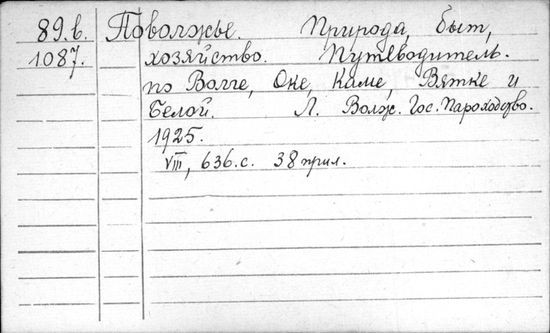 89.в. Поволжье. Природа, быт,
1087. хозяйство. Путеводитель.
по Волге, Оке, Каме, Вятке и
Белой. Л. Волж. Гос. Пароходство.
1925.
VIII, 636.с. 38 прил.